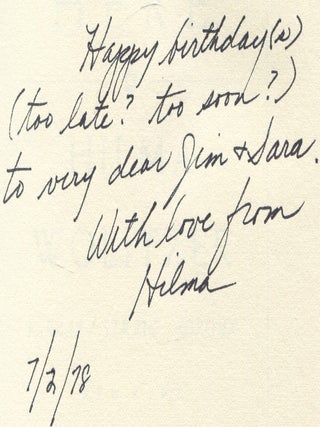 Happy birthday(s)
(too late? too soon?)
to very dear Jim & Sara.
With love from
Hilma
7/2/78